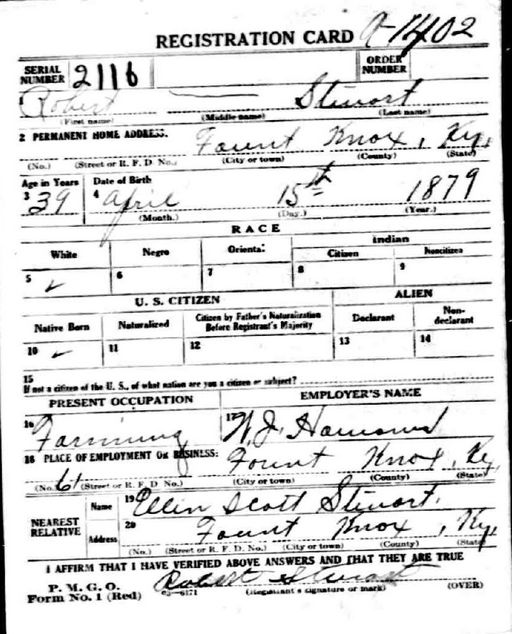 REGISTRATION CARD A-1402
SERIAL NUMBER 2116 ORDER NUMBER
Robert Stewart
(First name) (Middle name) (Last name)
2 PERMANENT HOME ADDRESS: Fount Knox, Ky.
(No.) (Street or R. F. D. No.) (City or town) (County) (State)
Age in Years Date of Birth
3 39 4 April 15th 1879
(Month.) (Day.) (Year.)
RACE
White Negro Oriental Indian
Citizen Noncitizen
5 ✓ 6 7 8 9
U. S. CITIZEN ALIEN
Native Born Naturalized Citizen by Father's Naturalization Before Registrant's Majority Declarant Non-declarant
10 ✓ 11 12 13 14
15
If not a citizen of the U. S., of what nation are you a citizen or subject?
PRESENT OCCUPATION EMPLOYER'S NAME
16 Farming 17 J.
18 PLACE OF EMPLOYMENT OR BUSINESS: Fount Knox, Ky.
(No.) (Street or R. F. D. No.) (City or town) (County) (State)
NEAREST RELATIVE Name 19 Ellen Scott Stewart.
Address 20 Fount Knox, Ky.
(No.) (Street or R. F. D. No.) (City or town) (County) (State)
I AFFIRM THAT I HAVE VERIFIED ABOVE ANSWERS AND THAT THEY ARE TRUE
P. M. G. O.
Form No. 1 (Red) 03-6171 Robert Stewart
(Registrant's signature or mark) (OVER)